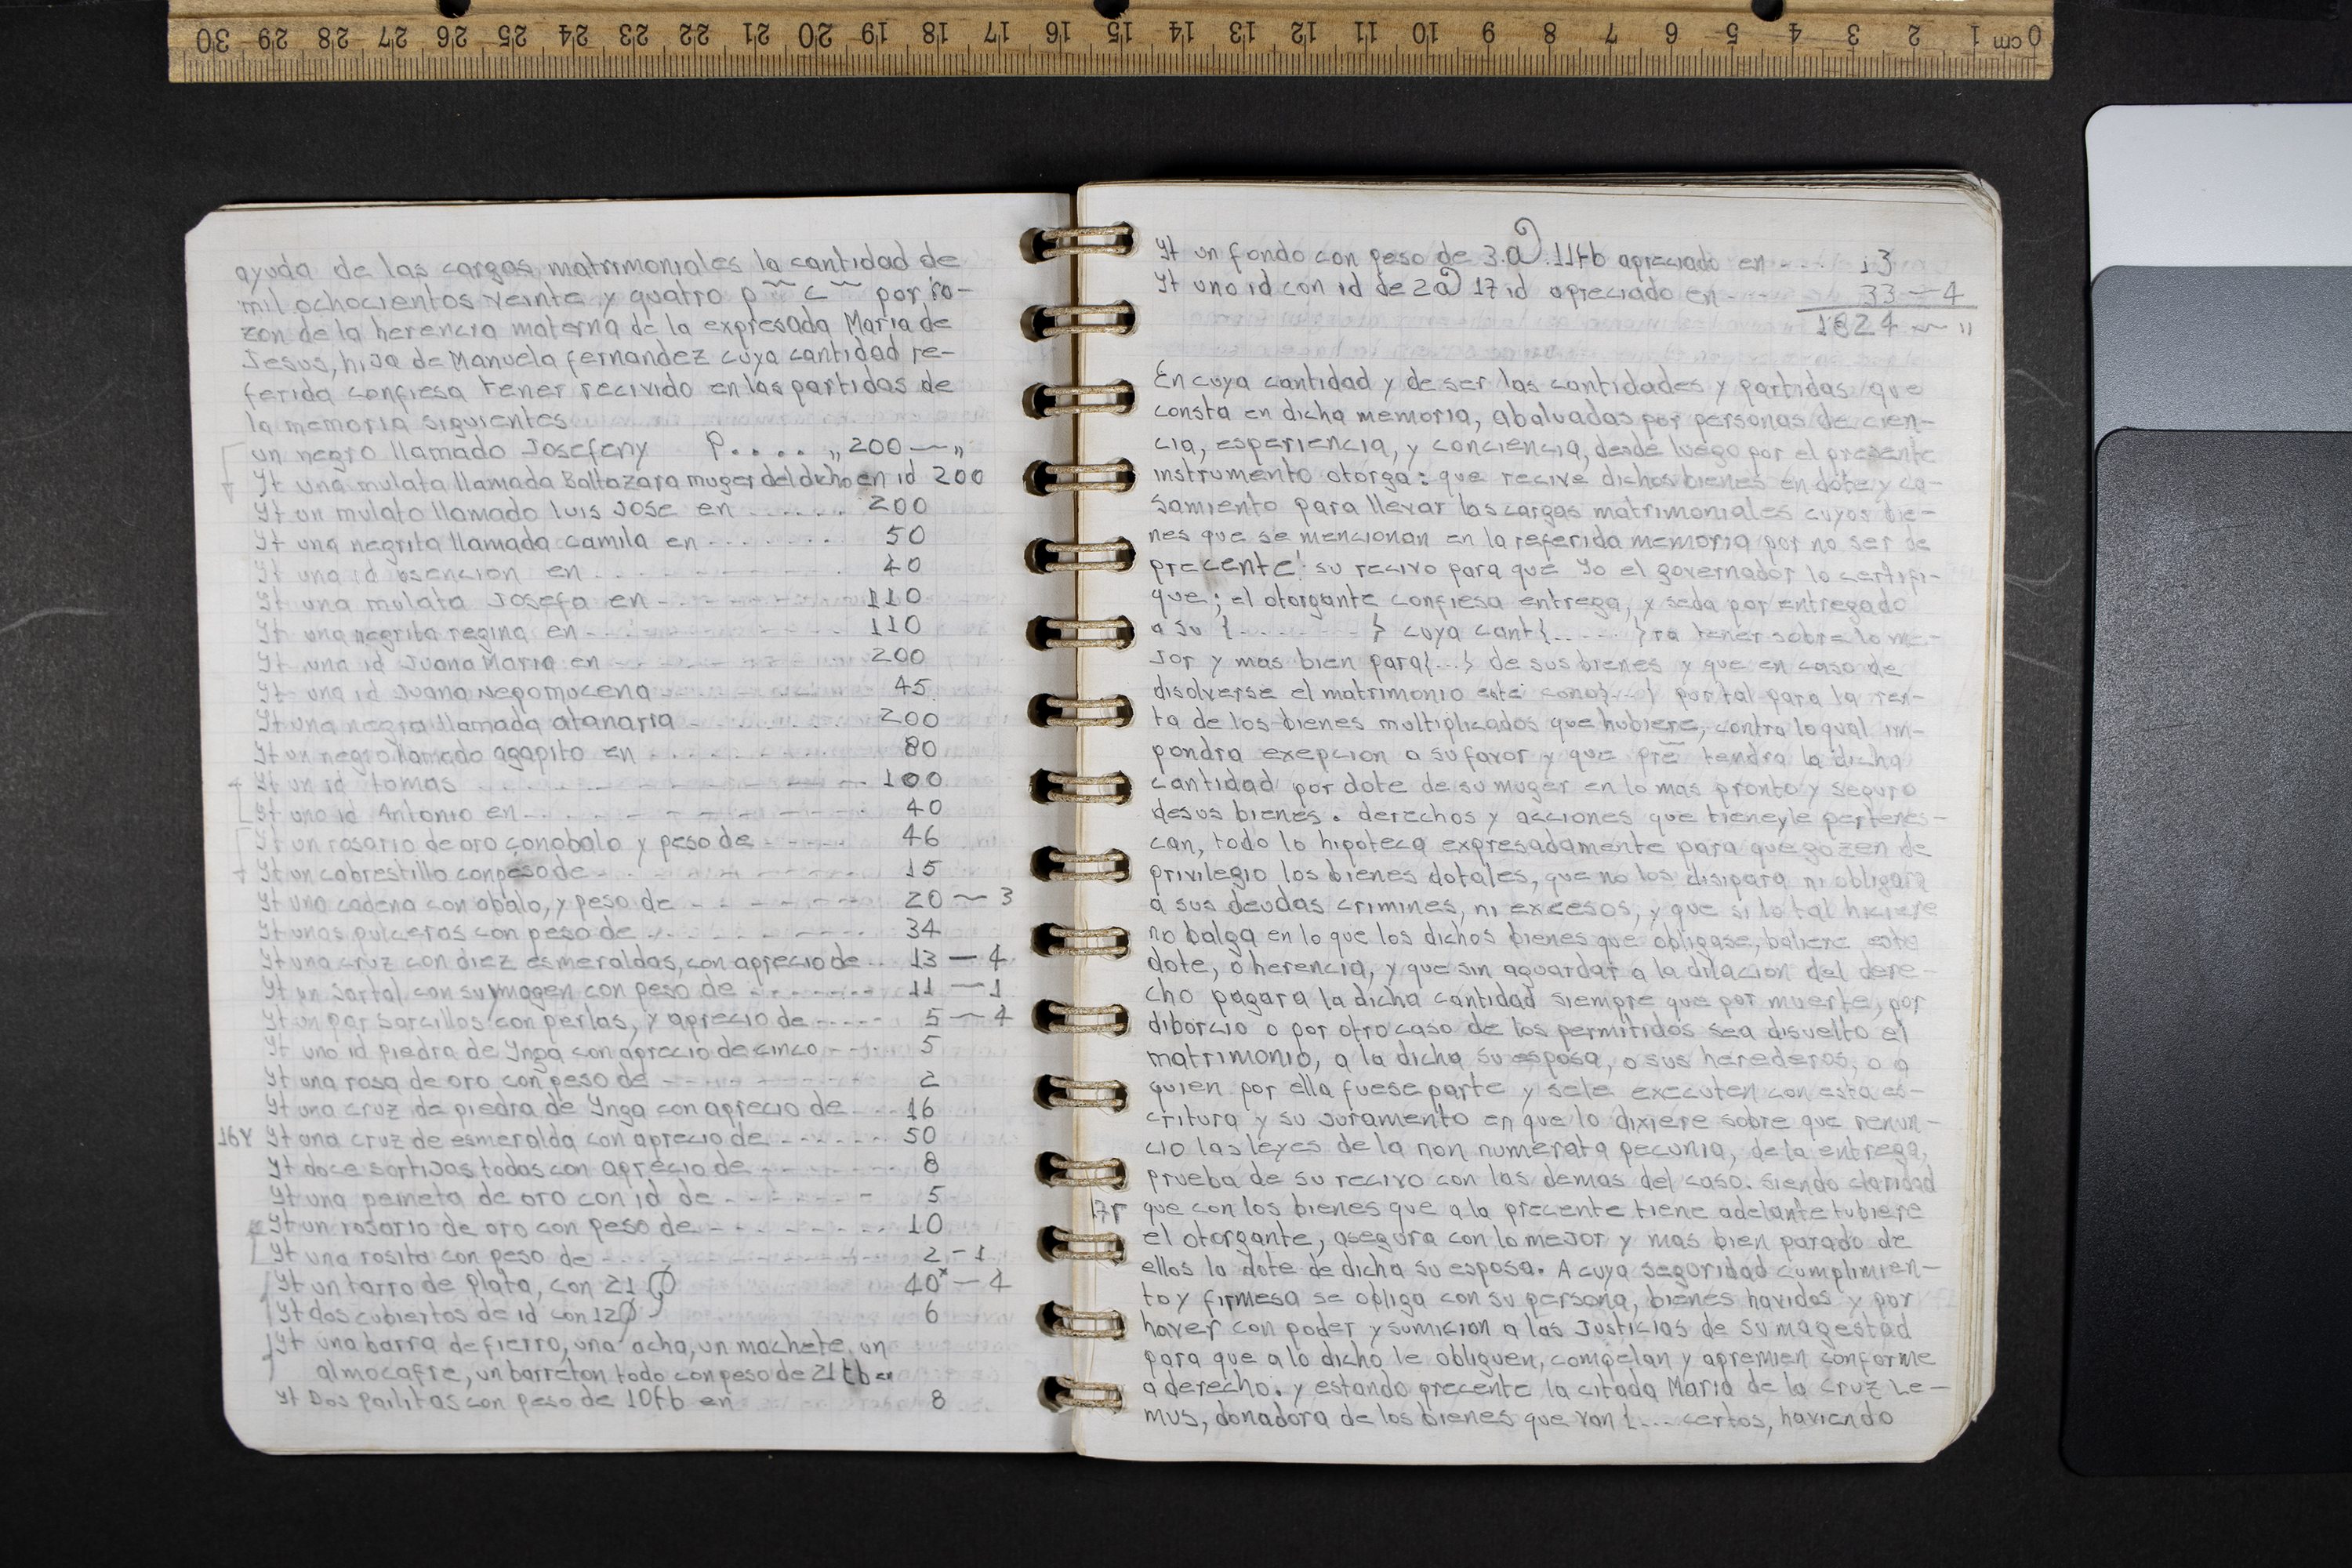 0 cm 1 2 3 4 5 6 7 8 9 10 11 12 13 14 15 16 17 18 19 20 21 22 23 24 25 26 27 28 29 30
ayuda de las cargas matrimoniales la cantidad de
mil ochocientos veinte y quatro p~~ c~~ por ro-
zon de la herencia materna de la expresada Maria de
Jesus, hija de Manuela fernandez cuya cantidad re-
ferida confiesa tener recivido en las partidas de
la memoria siguientes
un negro llamado Josefeny P.... „ 200 — „
Yt una mulata llamada Baltazara muger del dicho en id 200
Yt un mulato llamado luis Jose en ...... 200
Yt una negrita llamada camila en ....... 50
Yt una id asencion en ........... 40
Yt una mulata Josefa en ---------- 110
Yt una negrita regina en ---------- 110
Yt una id Juana Maria en ---------- 200
Yt una id Juana Nepomucena ------- 45
Yt una negra llamada atanaria ....... 200
Yt un negro llamado agapito en ....... 80
Yt un id tomas ............ 100
Yt uno id Antonio en ------------ 40
Yt un rosario de oro conobalo y peso de ----- 46
Yt un cabrestillo con peso de ---------- 15
Yt una cadena con abalo, y peso de ------- 20 — 3
Yt unas pulceras con peso de ---------- 34
Yt una cruz con diez esmeraldas, con aprecio de .. 13 — 4
Yt un sartal con su ymagen con peso de ------- 11 — 1
Yt un par sarcillos con perlas, y aprecio de ----- 5 — 4
Yt uno id piedra de Ynga con aprecio de cinco ---- 5
Yt una rosa de oro con peso de ---------- 2
Yt una cruz de piedra de Ynga con aprecio de ---- 16
16v Yt una cruz de esmeralda con aprecio de ------ 50
Yt doce sortijas todas con aprecio de ------- 8
Yt una peineta de oro con id de ------- 5
Yt un rosario de oro con peso de -------- 10
Yt una rosita con peso de ----------- 2 - 1
Yt un tarro de plata, con 21 40x — 4
Yt dos cubiertos de id con 12 6
Yt una barra de fierro, una acha, un machete, un
almocafre, un barreton todo con peso de 21 tb en
Yt Dos pailitas con peso de 10 tb en 8
Yt un fondo con peso de 3.a). 11 tb apreciado en ---- 13
Yt uno id con id de 2a) 17 id apreciado en --- 33 — 4
1824 ~ "
En cuya cantidad y de ser las cantidades y partidas que
consta en dicha memoria, abaluadas por personas de cien-
cia, esperiencia, y conciencia, desde luego por el presente
instrumento otorga: que recive dichos bienes en dote y ca-
samiento para llevar las cargas matrimoniales cuyos bie-
nes que se mencionan en la referida memoria por no ser de
precente su recivo para que Yo el governador lo certifi-
que; el otorgante confiesa entrega, y seda por entregado
a su {.........} cuya cant{......}ra tener sobre lo me-
jor y mas bien para{...} de sus bienes y que en caso de
disolverse el matrimonio este cono{...} por tal para la ren-
ta de los bienes multiplicados que hubiere, contra lo qual im-
pondra exepcion a su favor y que pre tendra la dicha
cantidad por dote de su muger en lo mas pronto y seguro
desus bienes. derechos y acciones que tiene y le pertenes-
can, todo lo hipoteca expresadamente para que gozen de
privilegio los bienes dotales, que no los disipara ni obligara
a sus deudas crimines, ni excesos, y que si lo tal hiciere
no balga en lo que los dichos bienes que obligase, baliere este
dote, o herencia, y que sin aguardar a la dilacion del dere-
cho pagara la dicha cantidad siempre que por muerte, por
diborcio o por otro caso de los permitidos sea disuelto el
matrimonio, a la dicha su esposa, o sus herederos, o a
quien por ella fuese parte y sele executen con esta es-
critura y su juramento en que lo dixiere sobre que renun-
cio las leyes de la non numerata pecunia, de la entrega,
prueba de su recivo con las demas del caso. siendo claridad
17r que con los bienes que a la precente tiene adelante tubiere
el otorgante, asegura con lo mejor y mas bien parado de
ellos la dote de dicha su esposa. A cuya seguridad cumplimien-
to y firmesa se obliga con su persona, bienes havidos y por
haver con poder y sumicion a las Justicias de su magestad
para que a lo dicho le obliguen, compelan y apremien conforme
a derecho. y estando precente la citada Maria de la cruz Le-
mus, donadora de los bienes que van {... certos, haviendo